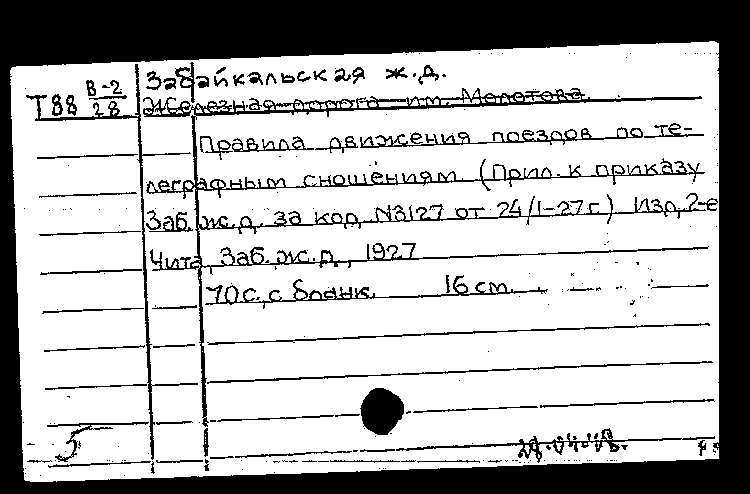 Забайкальская ж.д.
Т88 В-2/28 Железная дорога им. Молотова.
Правила движения поездов по те-
леграфным сношениям (Прил. к приказу
Заб. ж.д. за код N3127 от 24/I-27г.) Изд. 2-е
Чита, Заб. ж.д., 1927
70 с., с бланк. 16 см.
5